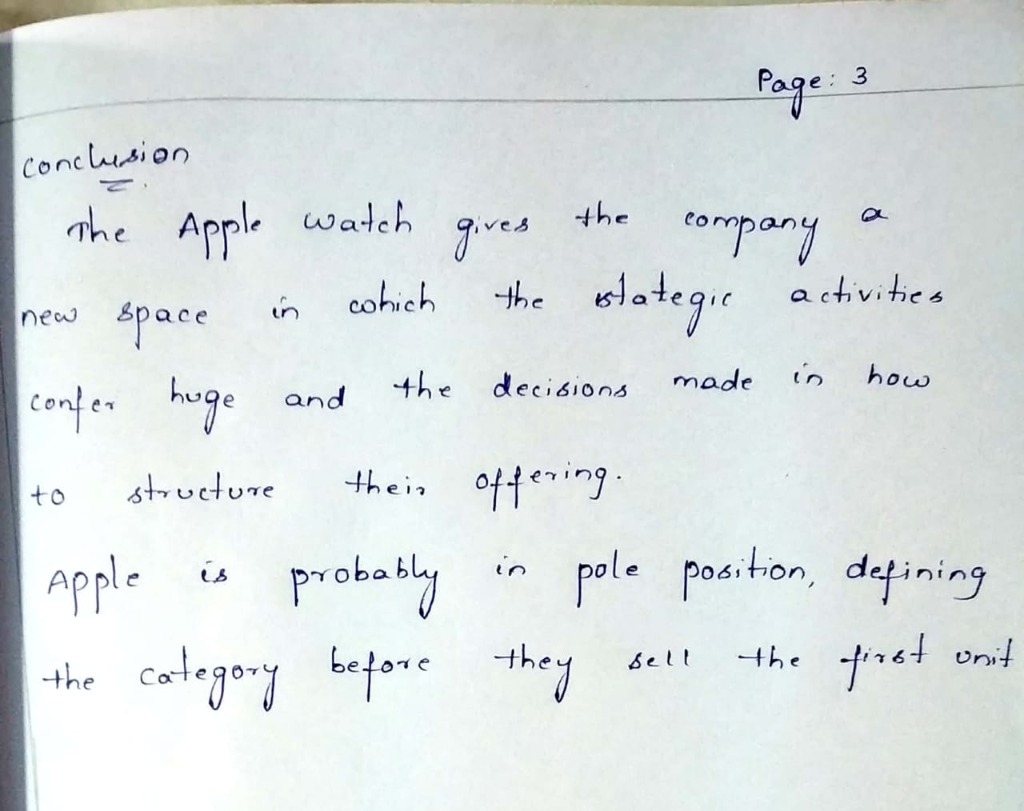 Page: 3
conclusion
The Apple watch gives the company a
new space in which the stategic activities
confer huge and the decisions made in how
to structure their offering.
Apple is probably in pole position, defining
the category before they sell the first unit